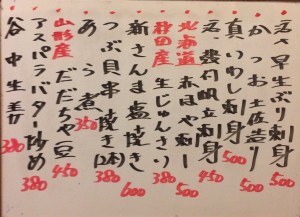 早生ぶり刺身 500
かつお土佐造り 500
真いわし刺身 500
活帆立刺身 450
北海道 赤ほや刺身 500
秋田産 生じゅんさい 380
新さんま塩焼き 600
つぶ貝串焼き(2本) 380
あら煮 350
山形産 だだちゃ豆 450
アスパラバター炒め 380
谷中生姜 380